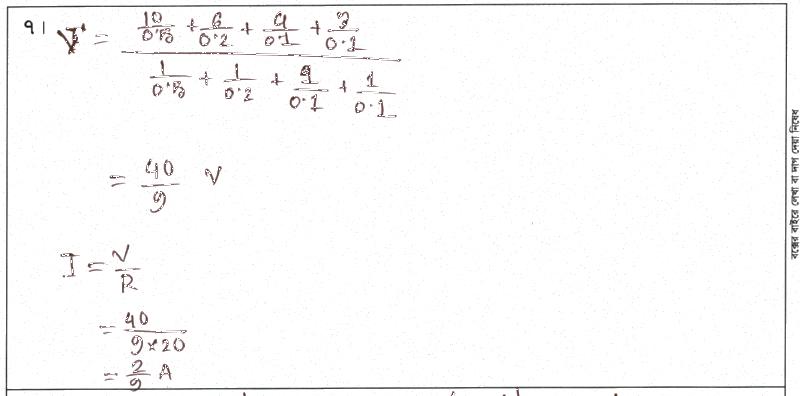 ৭। V' = (10/0.5 + 6/0.2 + 4/0.1 + 3/0.1) / (1/0.5 + 1/0.2 + 1/0.1 + 1/0.1)
= 40/9 V
I = V/R
= 40/(9×20)
= 2/9 A
বক্সের বাইরে লেখা বা দাগ দেয়া নিষেধ